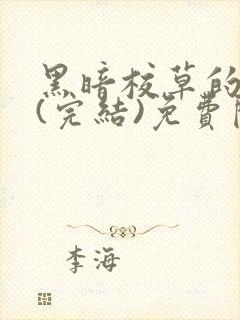 黑暗校草的
(完結)免費
李海